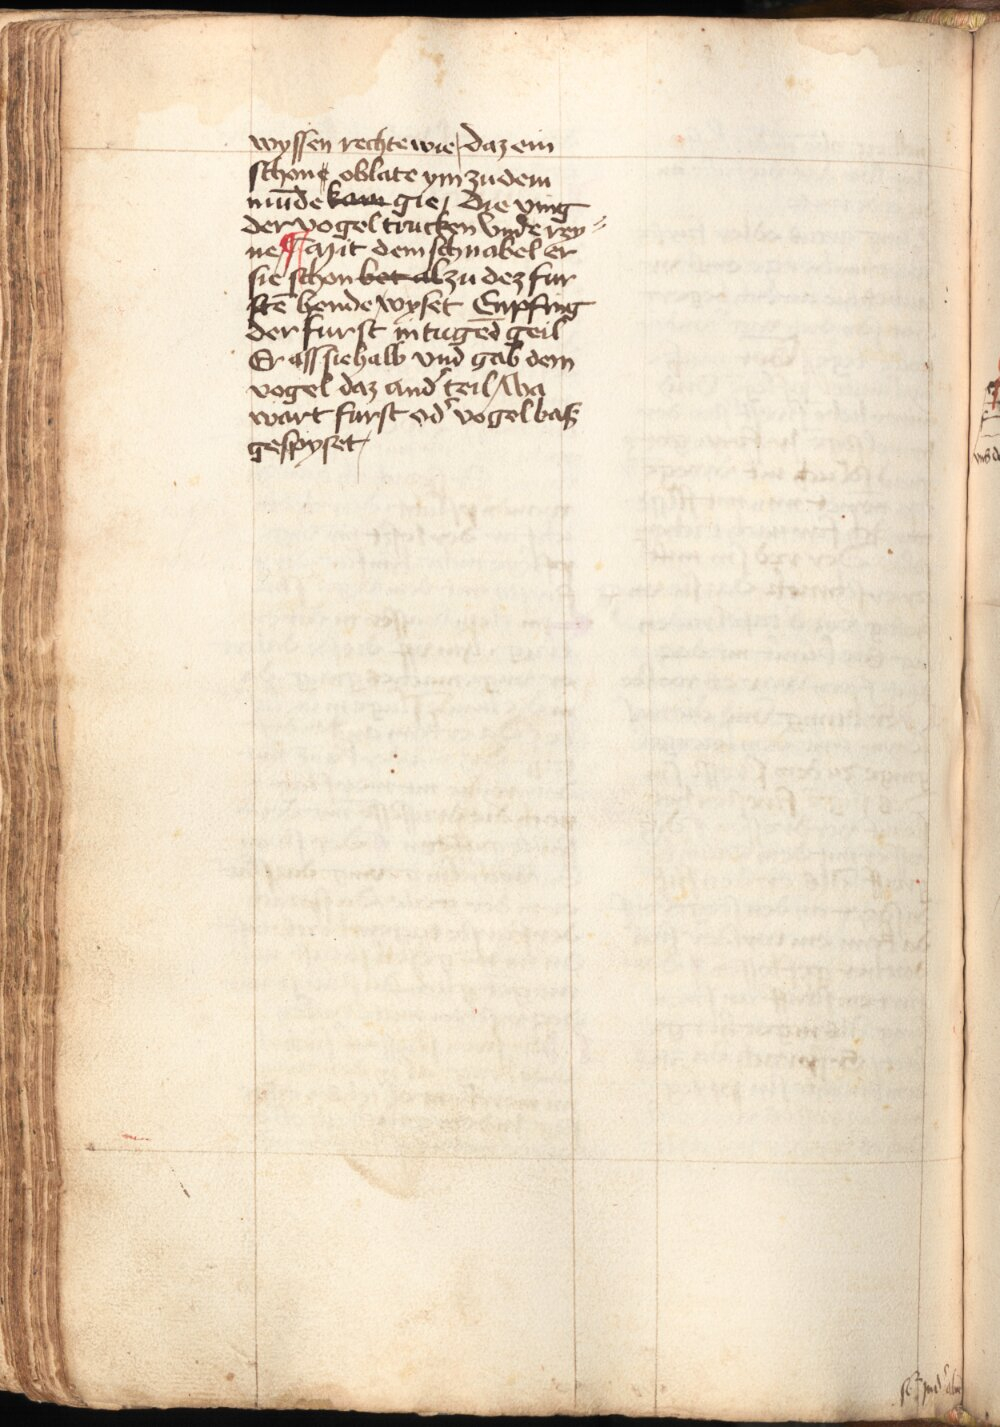 wyssen rechte wie / daz ein
schone oblate ym zu dem
mūde kam gie / die ving
der vogel trucken vnde rey⸗
ne / ¶ Mit dem schnabel er
sie schon bot al zu dez fur
stē hende / wyset Enpfing
der furst in tugēd geil
Er ass sie halb vnd gab dem
vogel daz and' teil / Wa
wart furst od' vogel baß
gespyset /